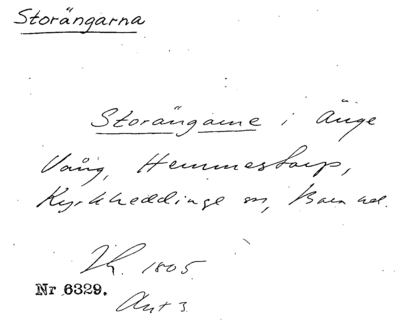 Storängarna
Storängarne i Änge
Vång, Hemmestorp,
Kyrkheddinge sn, Bara hd.
1805.
Nr 6329.
Akt 3